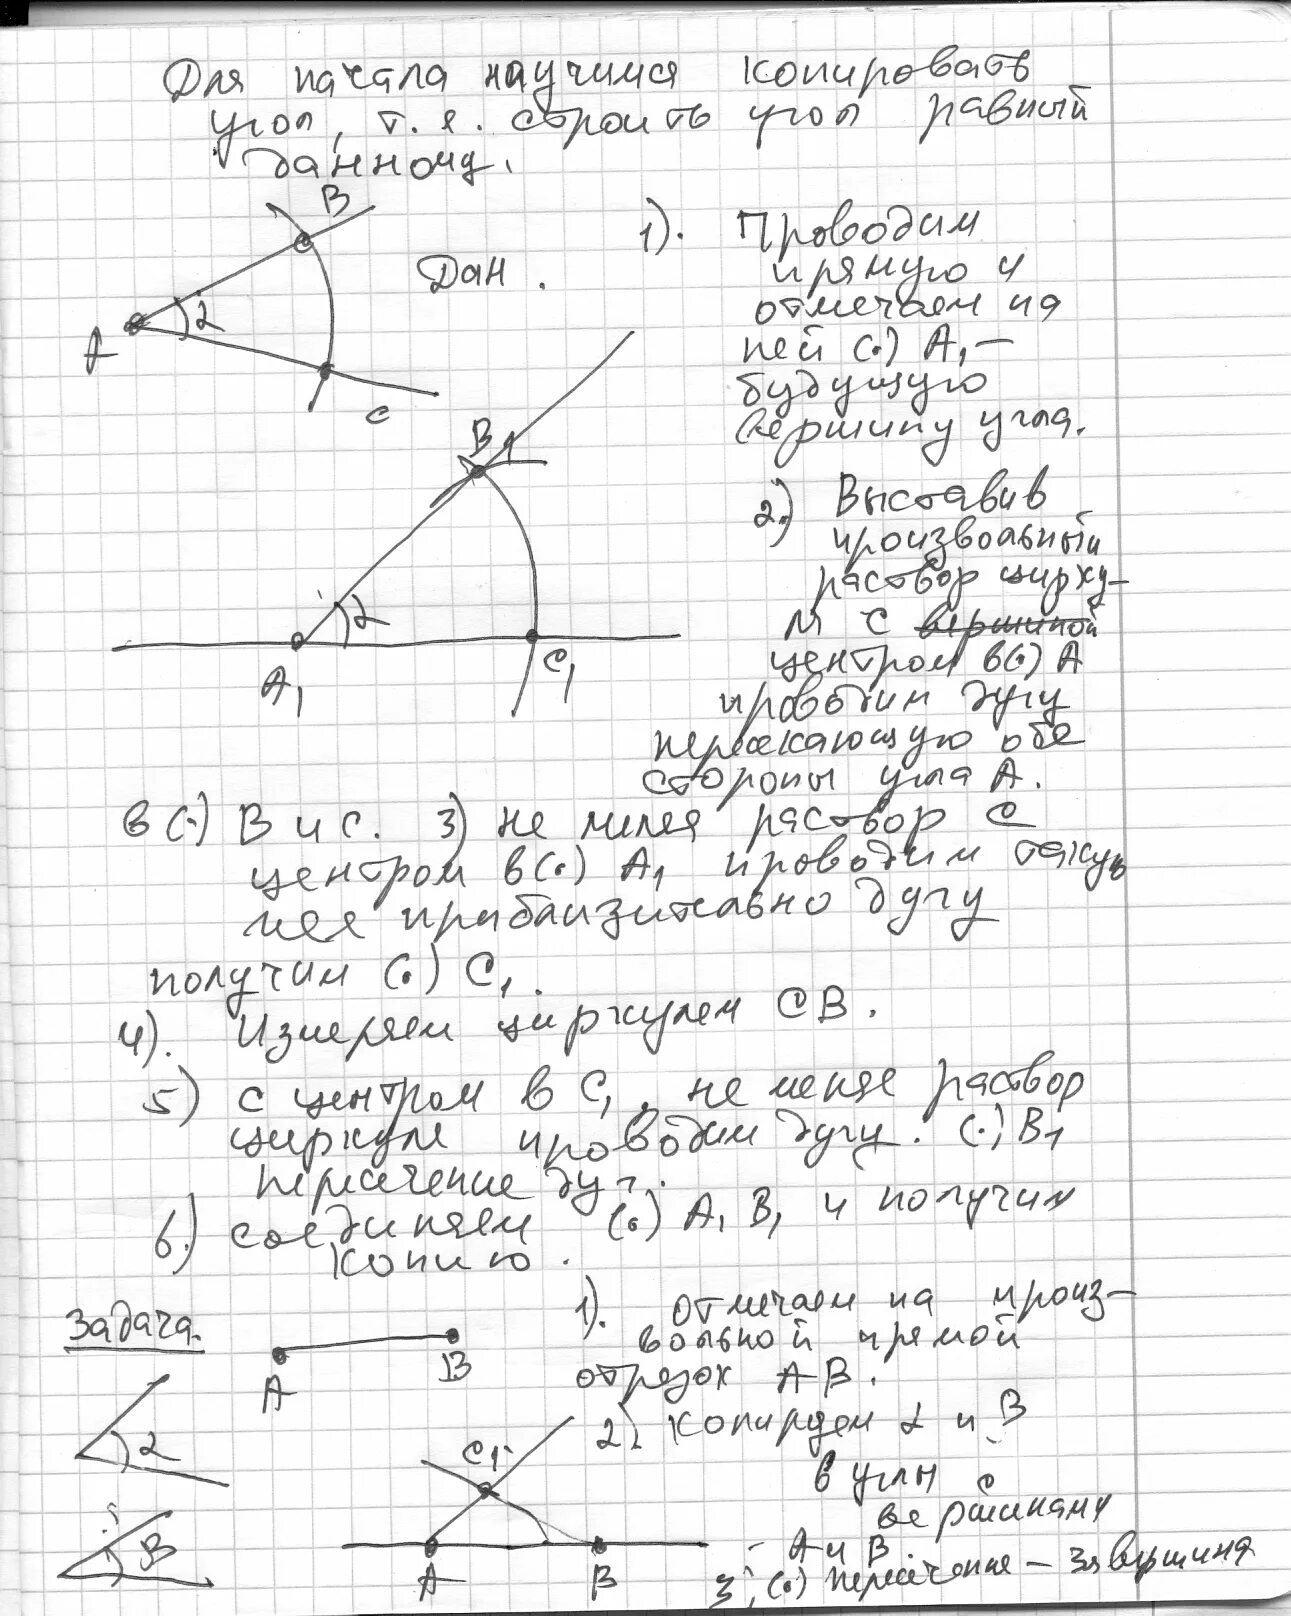 Для начала научимся копировать
угол, т.е. строить угол равный
данному.
B
Дан.
α
A
C
1). Проводим
прямую и
отмечаем на
ней (·) A₁ —
будущую
вершину угла.
B1
α
A₁
C₁
2.) Выставив
произвольный
раствор цирку-
ля с вершиной
центром в (·) A
проводим дугу
пересекающую обе
стороны угла A.
в (·) B и C. 3) не меняя раствор с
центром в (·) A₁ проводим такую
же приблизительно дугу
получим (·) C₁.
4). Измеряем циркулем CB.
5) с центром в C₁, не меняя раствор
циркуля проводим дугу. (·) B1
пересечение дуг.
6.) соединяем (·) A₁ B₁ и получим
копию.
Задача.
A
B
α
B
1). Отмечаем на произ-
вольной прямой
отрезок AB.
2). Копируем α и B
в углы с
вершинами
A и B
3) (·) пересечение - 3я вершина
C1
A
B